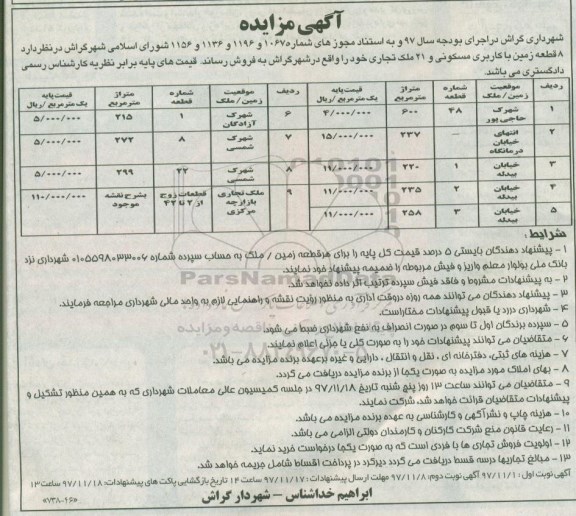 آگهی مزایده
شهرداری گراش در اجرای بودجه سال ۹۷ و به استناد مجوز های شماره ۱۰۶۷ و ۱۱۹۶ و ۱۱۳۶ و ۱۱۵۶ شورای اسلامی شهر گراش در نظر دارد
۸ قطعه زمین با کاربری مسکونی و ۲۱ ملک تجاری خود را واقع در شهر گراش به فروش رساند. قیمت های پایه برابر نظریه کارشناس رسمی
دادگستری می باشد.
ردیف موقعیت زمین / ملک شماره قطعه متراژ مترمربع قیمت پایه یک مترمربع / ریال ردیف موقعیت زمین / ملک شماره قطعه متراژ مترمربع قیمت پایه یک مترمربع / ریال
۱ شهرک حاجی پور ۴۸ ۶۰۰ ۴/۰۰۰/۰۰۰ ۶ شهرک آزادگان ۱ ۲۱۵ ۵/۰۰۰/۰۰۰
۲ انتهای خیابان درمانگاه — ۲۳۷ ۱۵/۰۰۰/۰۰۰ ۷ شهرک شمسی ۸ ۲۷۲ ۵/۰۰۰/۰۰۰
۳ خیابان بیدله ۱ ۲۲۰ ۱۱/۰۰۰/۰۰۰ ۸ شهرک شمسی ۲۲ ۲۹۹ ۵/۰۰۰/۰۰۰
۴ خیابان بیدله ۲ ۲۳۵ ۱۱/۰۰۰/۰۰۰ ۹ ملک تجاری بازارچه مرکزی قطعات زوج از ۲ تا ۴۲ بشرح نقشه موجود ۱۱۰/۰۰۰/۰۰۰
۵ خیابان بیدله ۳ ۲۵۸ ۱۱/۰۰۰/۰۰۰
شرایط:
۱ - پیشنهاد دهندگان بایستی ۵ درصد قیمت کل پایه را برای هر قطعه زمین / ملک به حساب سپرده شماره ۰۱۰۵۵۹۸۰۳۳۰۰۶ شهرداری نزد
بانک ملی بولوار معلم واریز و فیش مربوطه را ضمیمه پیشنهاد خود نمایند.
۲ - به پیشنهادات مشروط و فاقد فیش سپرده ترتیب اثر داده نخواهد شد.
۳ - پیشنهاد دهندگان می توانند همه روزه در وقت اداری به منظور رویت نقشه و راهنمایی لازم به واحد مالی شهرداری مراجعه فرمایند.
۴ - شهرداری در رد یا قبول پیشنهادات مختار است.
۵ - سپرده برندگان اول تا سوم در صورت انصراف به نفع شهرداری ضبط می شود.
۶ - متقاضیان می توانند پیشنهادات خود را به صورت کلی یا جزئی اعلام نمایند.
۷ - هزینه های ثبتی، دفترخانه ای، نقل و انتقال، دارایی و غیره بر عهده برنده مزایده می باشد.
۸ - بهای املاک مورد مزایده به صورت یکجا از برنده مزایده دریافت می گردد.
۹ - متقاضیان می توانند ساعت ۱۳ روز پنج شنبه تاریخ ۹۷/۱۱/۱۸ در جلسه کمیسیون عالی معاملات شهرداری که به همین منظور تشکیل و
پیشنهادات متقاضیان قرائت خواهد شد، شرکت نمایند.
۱۰ - هزینه چاپ و نشر آگهی و کارشناسی به عهده برنده مزایده می باشد.
۱۱ - رعایت قانون منع شرکت کارکنان و کارمندان دولتی الزامی می باشد.
۱۲ - اولویت فروش تجاری ها با فردی است که به صورت یکجا درخواست خرید نماید.
۱۳ - مبالغ تجاریها در سه قسط دریافت می گردد دیرکرد در پرداخت اقساط شامل جریمه خواهد شد.
آگهی نوبت اول: ۹۷/۱۱/۱ آگهی نوبت دوم: ۹۷/۱۱/۸ مهلت ارسال پیشنهادات: ۹۷/۱۱/۱۷ ساعت ۱۴ تاریخ بازگشایی پاکت های پیشنهادات: ۹۷/۱۱/۱۸ ساعت ۱۳
ابراهیم خداشناس - شهردار گراش
«۷۳۸۰۴۶»
ParsNamadData